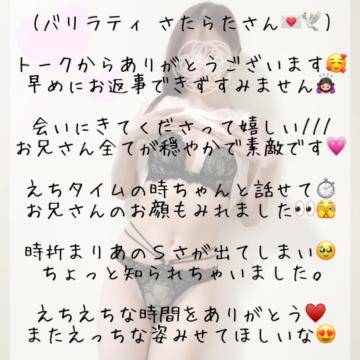 (バリラティ さたらたさん💌🕊️)
トークからありがとうございます🥰
早めにお返事できずすみません🙇🏻‍♀️
会いにきてくださって嬉しい///
お兄さん全てが穏やかで素敵です💗
えちタイムの時ちゃんと話せて⏱️
お兄さんのお顔もみれました👀🫣
時折まりあのSさが出てしまい🥹
ちょっと知られちゃいました。
えちえちな時間をありがとう♥️
またえっちな姿みせてほしいな😍